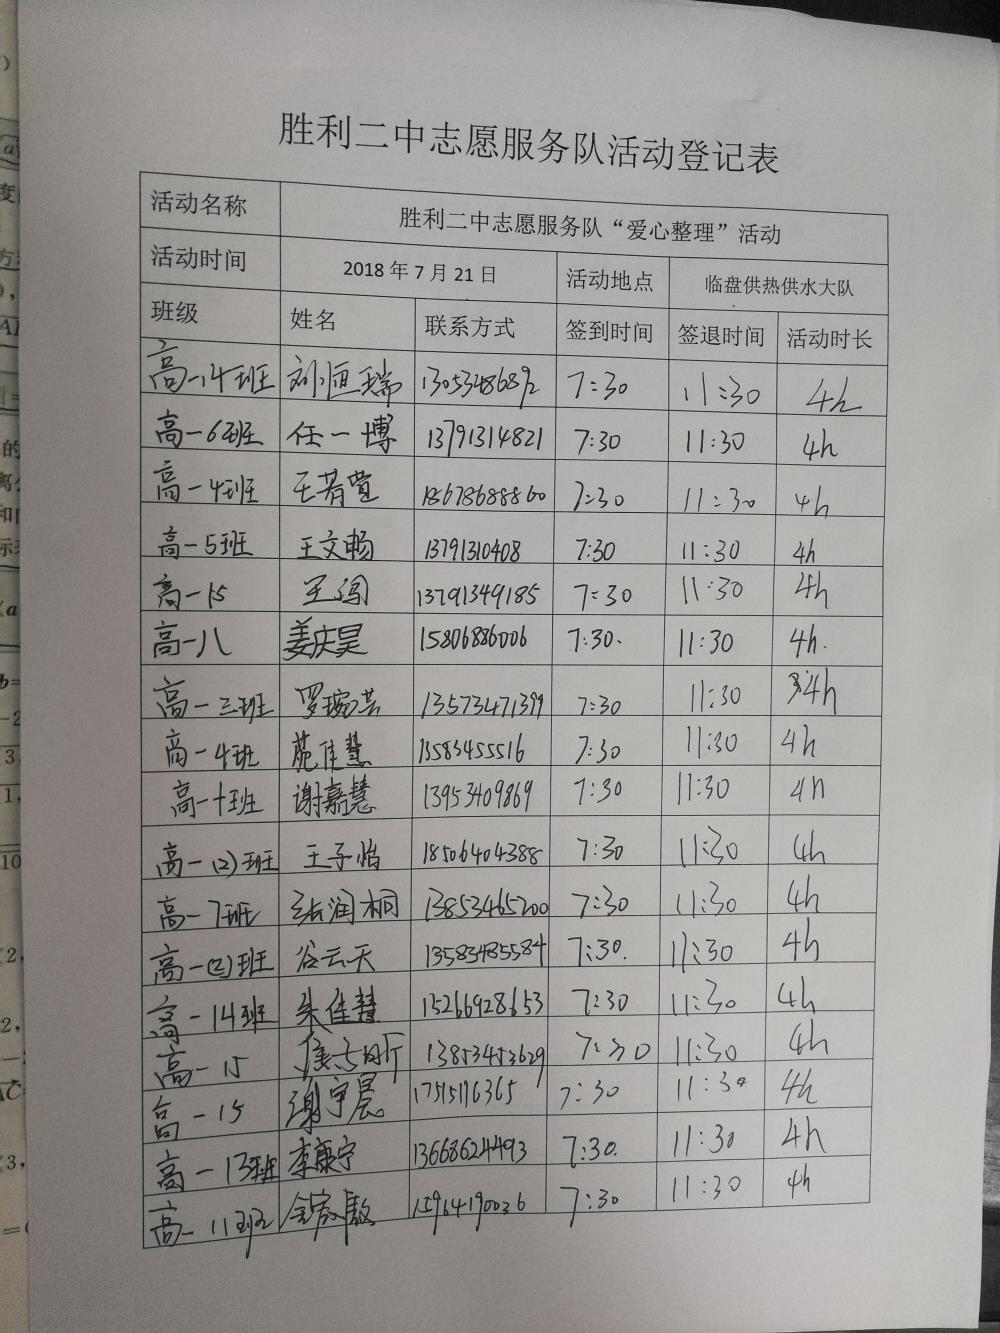 胜利二中志愿服务队活动登记表
活动名称 胜利二中志愿服务队“爱心整理”活动
活动时间 2018年7月21日 活动地点 临盘供热供水大队
班级 姓名 联系方式 签到时间 签退时间 活动时长
高一14班 刘恒瑞 13053486892 7:30 11:30 4h
高一6班 任一博 13791314821 7:30 11:30 4h
高一4班 王若萱 18678688860 7:30 11:30 4h
高一5班 王文畅 13791310408 7:30 11:30 4h
高一15 王闯 13791349185 7:30 11:30 4h
高一八 姜庆昊 15806886006 7:30. 11:30 4h.
高一三班 罗琬芸 13573471399 7:30 11:30 4h
高一4班 苑佳慧 13583455516 7:30 11:30 4h
高一十班 谢嘉慧 13953409869 7:30 11:30 4h
高一(2)班 王子怡 18506404388 7:30 11:30 4h
高一7班 张润桐 13853465200 7:30 11:30 4h
高一(2)班 谷云天 13583485584 7:30. 11:30 4h
高一14班 朱佳慧 15266928653 7:30 11:30 4h
高一15 13853453629 7:30 11:30 4h
高一15 谢宇晨 17515116365 7:30 11:30 4h
高一13班 李康宁 13668624493 7:30. 11:30 4h
高一11班 15964190036 7:30 11:30 4h